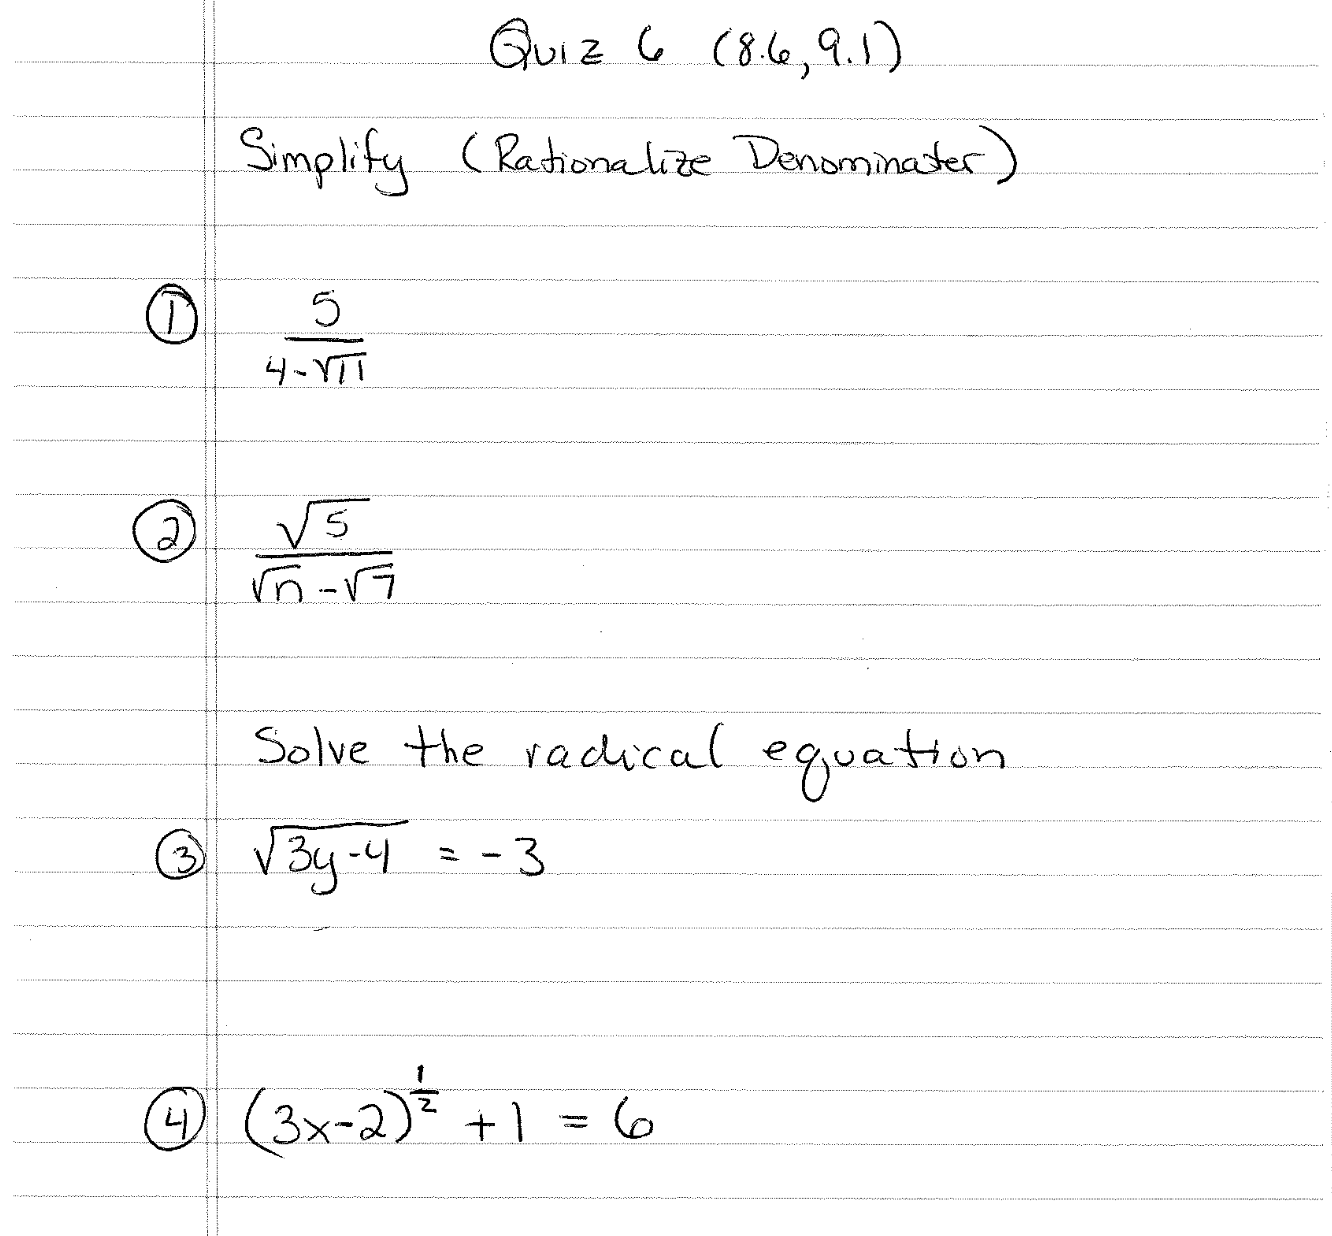 Quiz 6 (8.6, 9.1)
Simplify (Rationalize Denominater)
① 5/(4-√11)
② √5/(√n-√7)
Solve the radical equation
③ √(3y-4) = -3
④ (3x-2)^(1/2) + 1 = 6